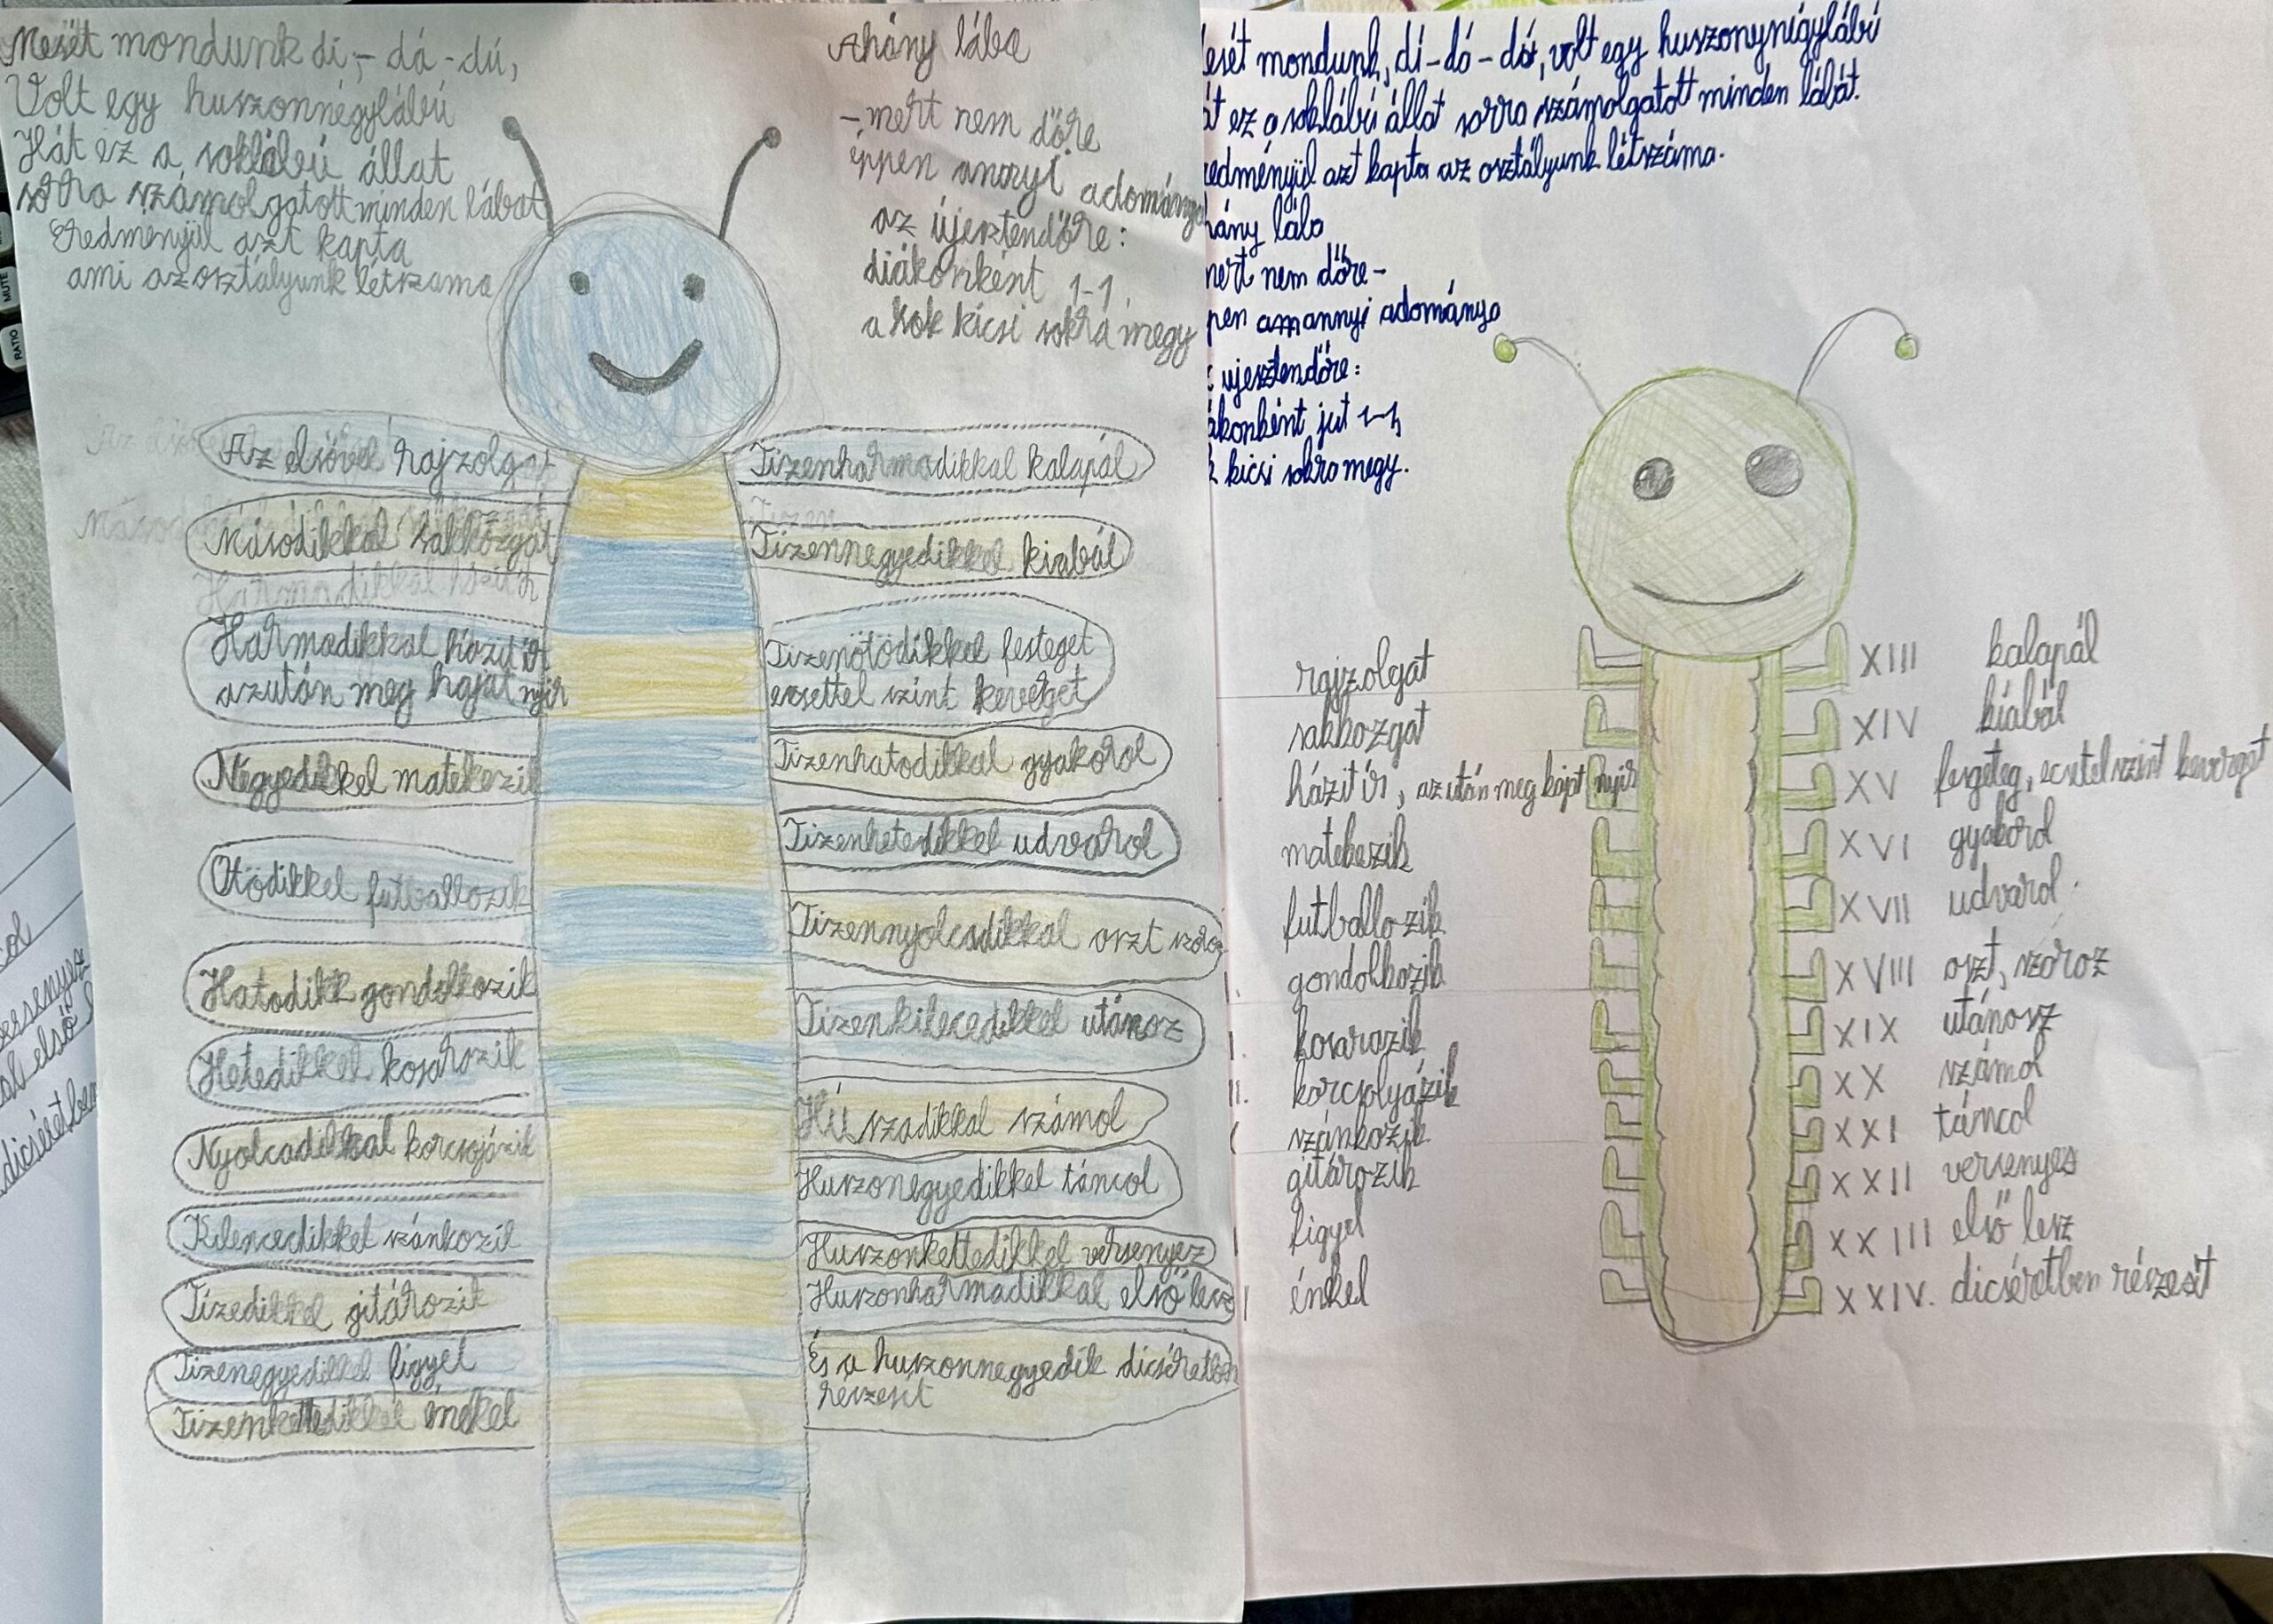 Mesét mondunk di,- dá - dú,
Volt egy huszonnégylábú
Hát ez a soklábú állat
sorra számolgatott minden lábat
Eredményül azt kapta
ami az osztályunk létszama
Ahány lába
- mert nem dőre
éppen annyi adománya
az újesztendőre:
diákonként 1-1,
a sok kicsi sokra megy
Az elsővel rajzolgat
Másodikkal sakkozgat
Harmadikkal házit ír
azután meg hajat nyir
Negyedikkel matekezik
Ötödikkel futballozik
Hatodikk gondolkozik
Hetedikkel kosarazik
Nyolcadikkal korcsojázik
Kilencedikkel szánkozik
Tizedikkel gitározik
Tizenegyedikkel figyel
Tizenkettedikkel énekel
Tizenharmadikkal kalapál
Tizennegyedikkel kiabál
Tizenötödikkel festeget
ecsettel szint keverget
Tizenhatodikkal gyakorol
Tizenhetedikkel udvarol
Tizennyolcadikkal oszt szoroz
Tizenkilecedikkel utánoz
Húszadikkal számol
Huszonegyedikkel táncol
Huszonkettedikkel versenyez
Huszonharmadikkal első lesz
És a huszonnegyedik dicséretben
részesit
esét mondunk, di-dó-dú, volt egy huszonynégylábú
át ez a soklábú állat sorra számolgatott minden lábát.
edményül azt kapta az osztályunk létszáma.
hány lába
mert nem dőre -
pen amannyi adománya
ujesztendőre:
ákonként jut 1-1,
k kicsi sokra megy.
rajzolgat
sakkozgat
házit ír, azután meg hajat nyir
matekezik
futballozik
gondolkozik
kosarazik
korcsolyázik
szánkozik
gitározik
figyel
énkel
XIII kalapál
XIV kiabál
XV fesgeteg, ecsetel szint keverget
XVI gyakorol
XVII udvarol.
XVIII oszt, szoroz
XIX utánosz
XX számol
XXI táncol
XXII versenyes
XXIII első lesz
XXIV. dicséretben részesit